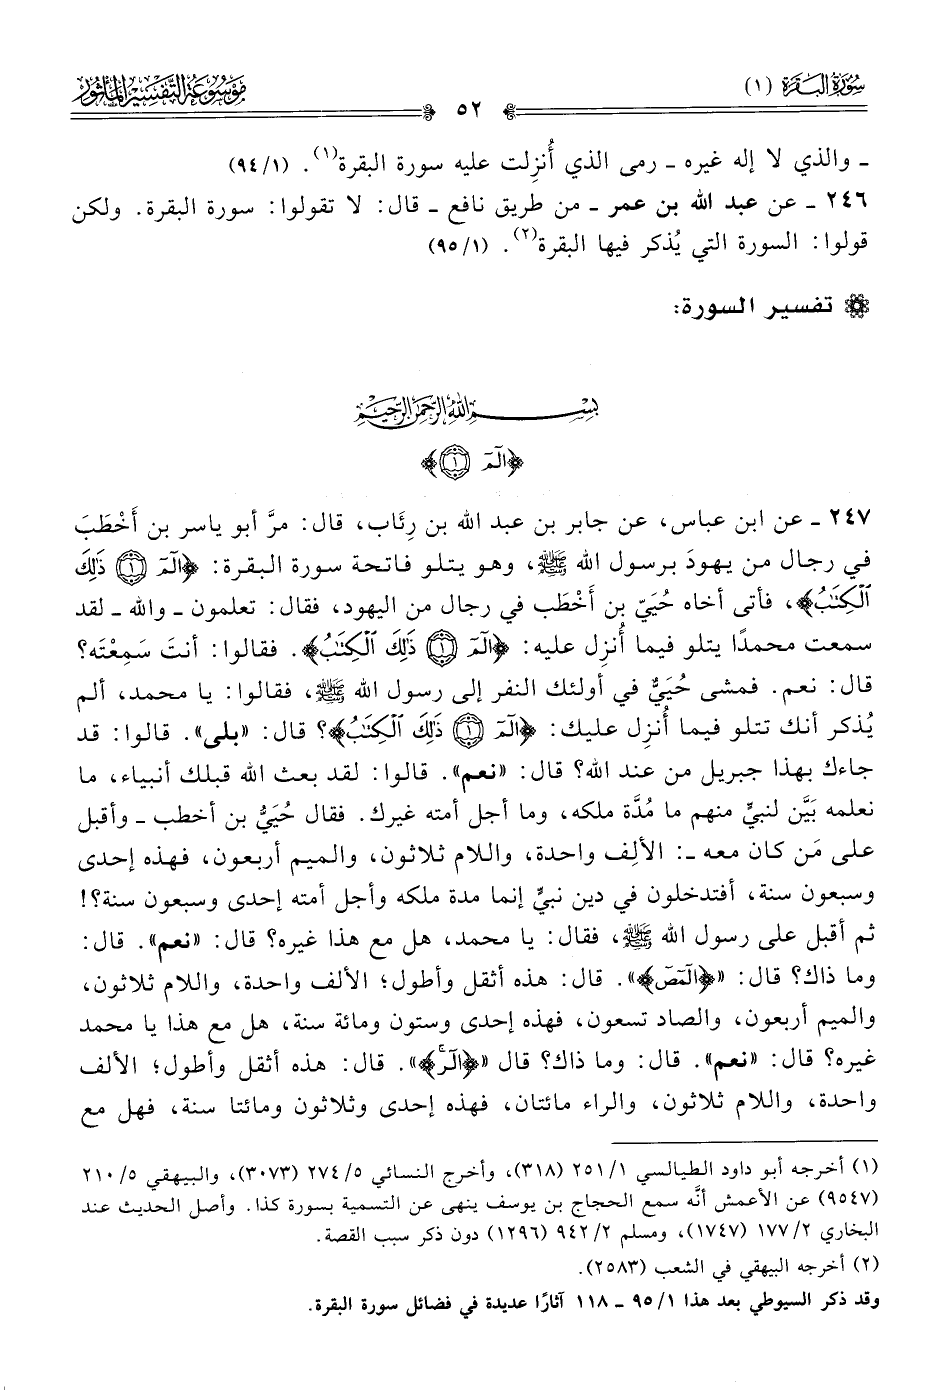 سُورَةُ البَقَرَةِ (١)
٥٢
مَوْسُوعَةُ التَّفْسِيرِ المَأْثُورِ
ـ والذي لا إله غيره ـ رمى الذي أُنزِلت عليه سورة البقرة(١). (٩٤/١)
٢٤٦ ـ عن عبد الله بن عمر ـ من طريق نافع ـ قال: لا تقولوا: سورة البقرة. ولكن
قولوا: السورة التي يُذكر فيها البقرة(٢). (٩٥/١)
تفسير السورة:
بِسْمِ اللَّهِ الرَّحْمَٰنِ الرَّحِيمِ
﴿الٓمٓ ۝١﴾
٢٤٧ ـ عن ابن عباس، عن جابر بن عبد الله بن رِئَاب، قال: مرَّ أبو ياسر بن أَخْطَبَ
في رجال من يهودَ برسول الله ﷺ، وهو يتلو فاتحة سورة البقرة: ﴿الٓمٓ ۝١ ذَٰلِكَ
ٱلْكِتَٰبُ﴾، فأتى أخاه حُيَيّ بن أَخْطَب في رجال من اليهود، فقال: تعلمون ـ والله ـ لقد
سمعت محمدًا يتلو فيما أُنزِل عليه: ﴿الٓمٓ ۝١ ذَٰلِكَ ٱلْكِتَٰبُ﴾. فقالوا: أنتَ سَمِعْتَه؟
قال: نعم. فمشى حُيَيٌّ في أولئك النفر إلى رسول الله ﷺ، فقالوا: يا محمد، ألم
يُذكر أنك تتلو فيما أُنزِل عليك: ﴿الٓمٓ ۝١ ذَٰلِكَ ٱلْكِتَٰبُ﴾؟ قال: «بلى». قالوا: قد
جاءك بهذا جبريل من عند الله؟ قال: «نعم». قالوا: لقد بعث الله قبلك أنبياء، ما
نعلمه بَيَّن لنبيٍّ منهم ما مُدَّة ملكه، وما أجل أمته غيرك. فقال حُيَيُّ بن أخطب ـ وأقبل
على مَن كان معه ـ: الألِف واحدة، واللام ثلاثون، والميم أربعون، فهذه إحدى
وسبعون سنة، أفتدخلون في دين نبيٍّ إنما مدة ملكه وأجل أمته إحدى وسبعون سنة؟!
ثم أقبل على رسول الله ﷺ، فقال: يا محمد، هل مع هذا غيره؟ قال: «نعم». قال:
وما ذاك؟ قال: «﴿الٓمٓصٓ﴾». قال: هذه أثقل وأطول؛ الألف واحدة، واللام ثلاثون،
والميم أربعون، والصاد تسعون، فهذه إحدى وستون ومائة سنة، هل مع هذا يا محمد
غيره؟ قال: «نعم». قال: وما ذاك؟ قال «﴿الٓرۚ﴾». قال: هذه أثقل وأطول؛ الألف
واحدة، واللام ثلاثون، والراء مائتان، فهذه إحدى وثلاثون ومائتا سنة، فهل مع
(١) أخرجه أبو داود الطيالسي ٢٥١/١ (٣١٨)، وأخرج النسائي ٢٧٤/٥ (٣٠٧٣)، والبيهقي ٢١٠/٥
(٩٥٤٧) عن الأعمش أنَّه سمع الحجاج بن يوسف ينهى عن التسمية بسورة كذا. وأصل الحديث عند
البخاري ١٧٧/٢ (١٧٤٧)، ومسلم ٩٤٢/٢ (١٢٩٦) دون ذكر سبب القصة.
(٢) أخرجه البيهقي في الشعب (٢٥٨٣).
وقد ذكر السيوطي بعد هذا ٩٥/١ ـ ١١٨ آثارًا عديدة في فضائل سورة البقرة.